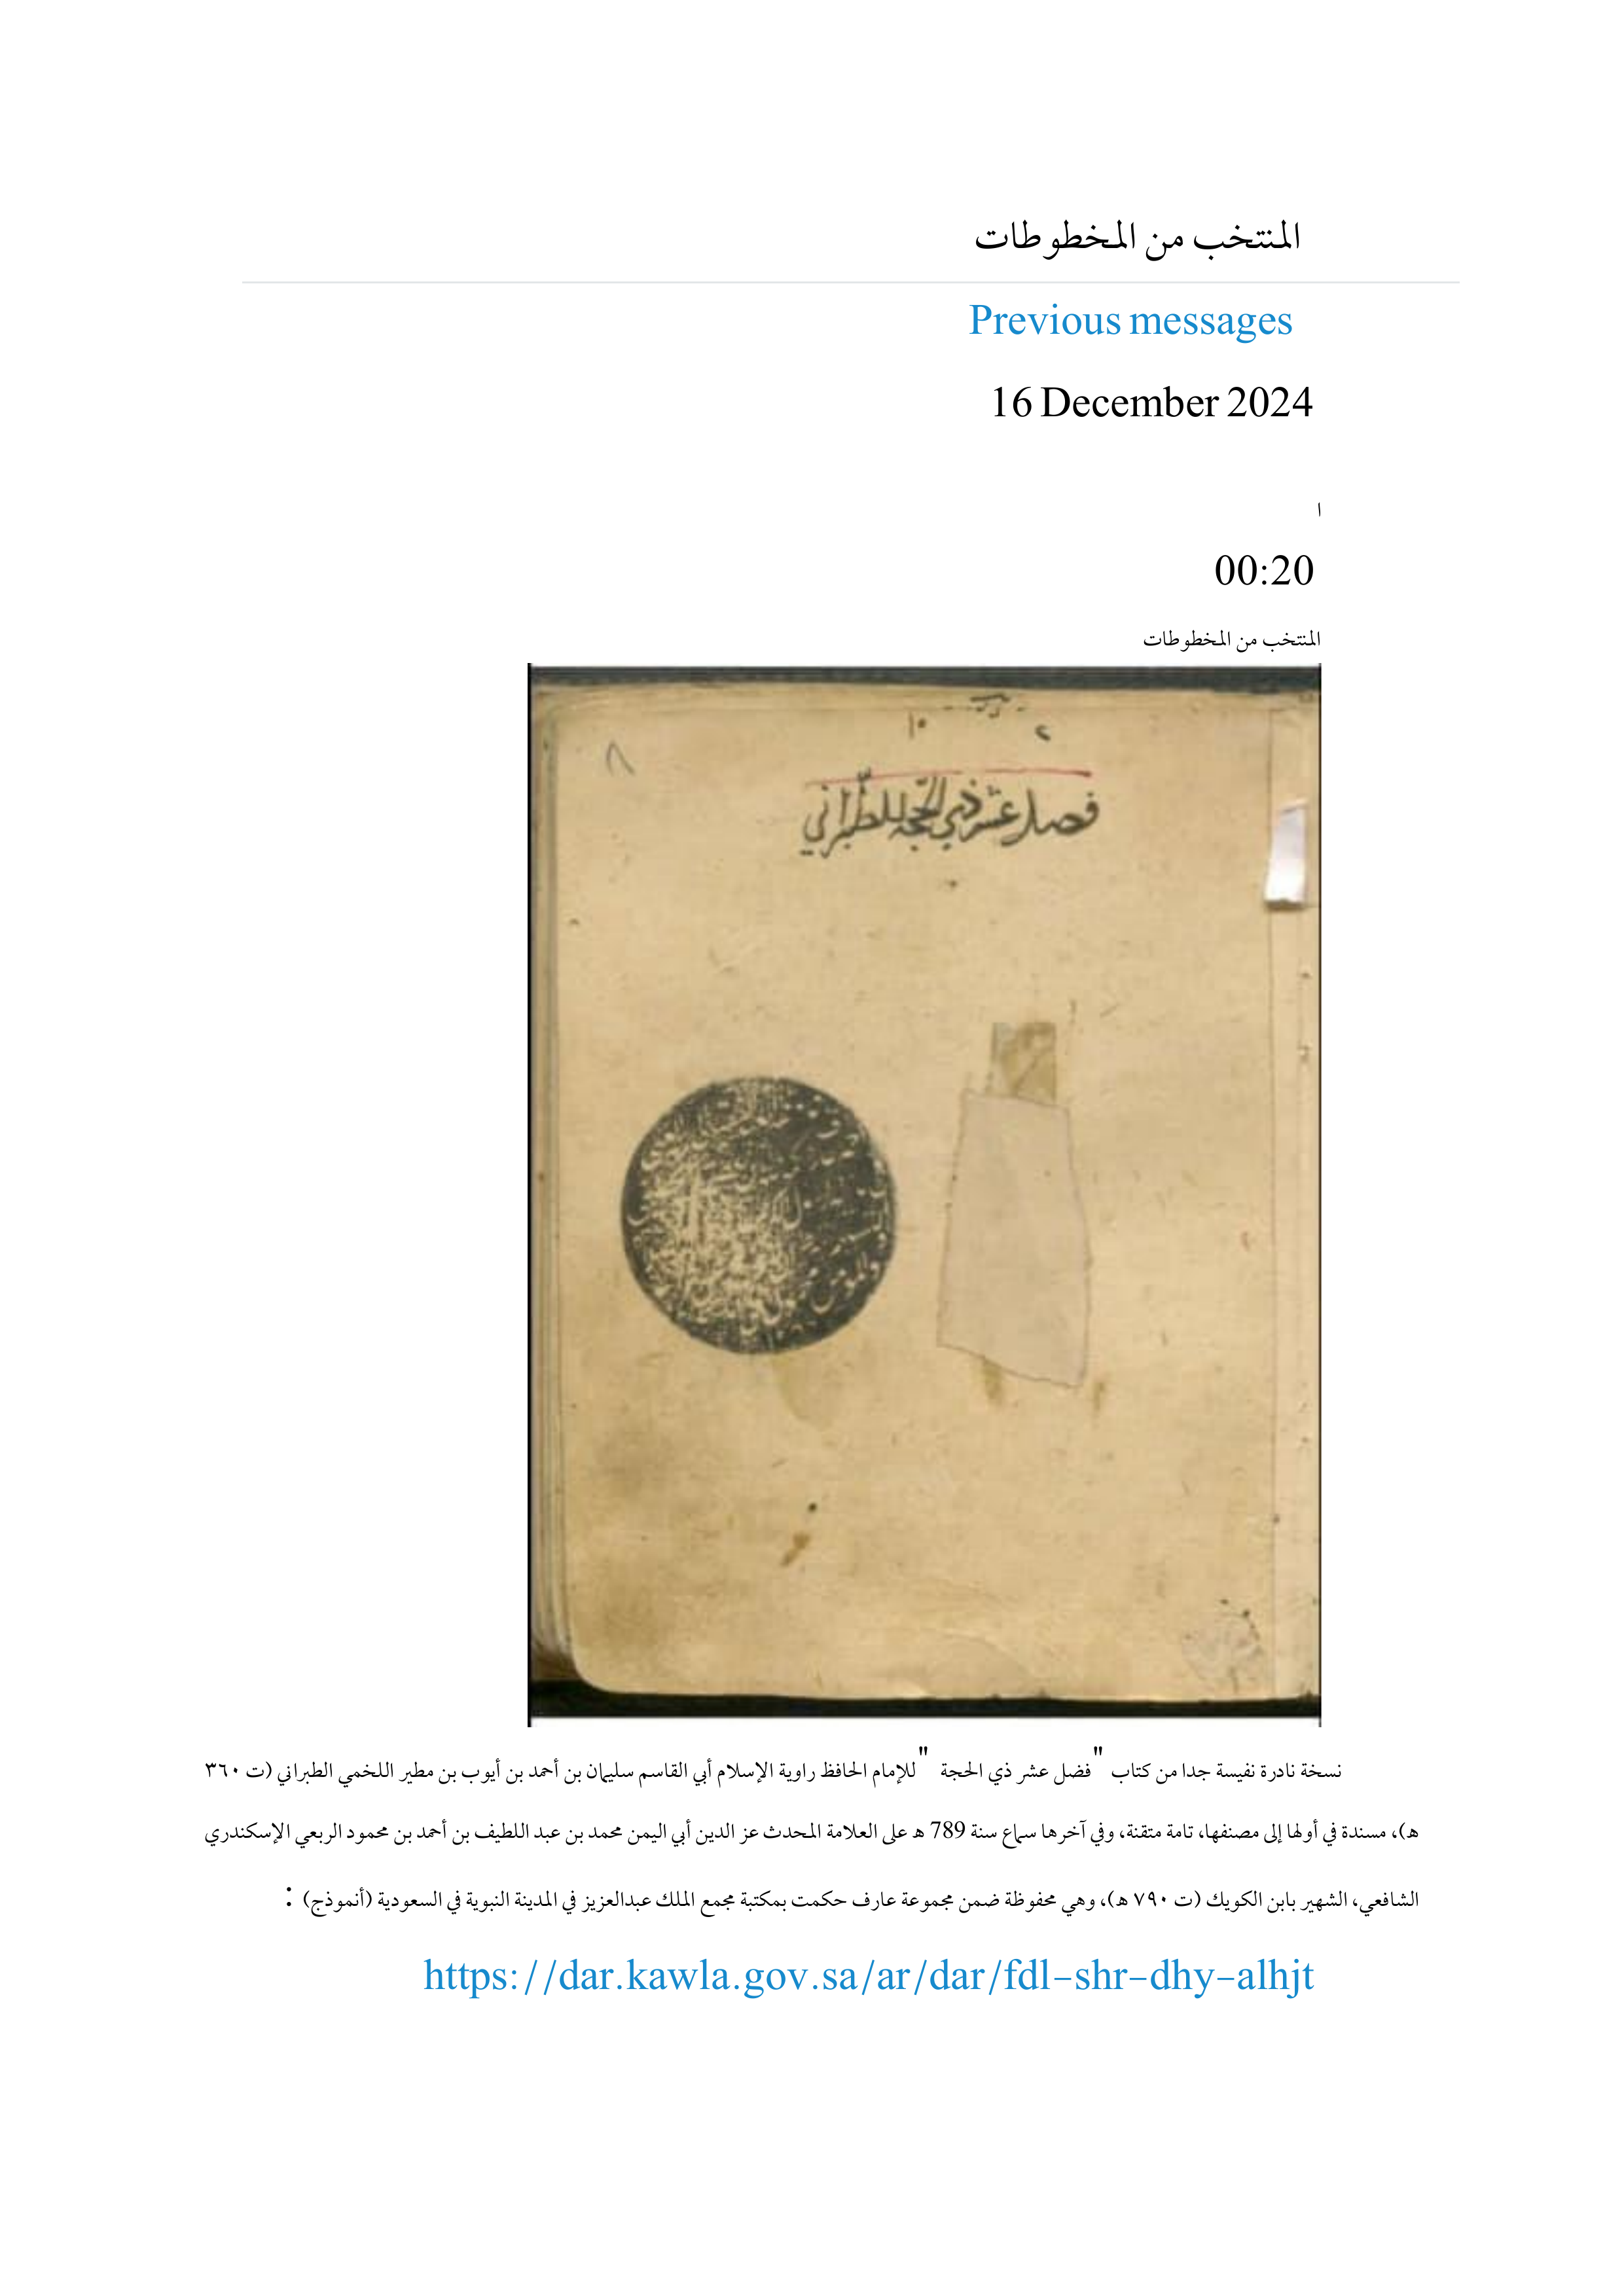 المنتخب من المخطوطات
Previous messages
16 December 2024
ا
00:20
المنتخب من المخطوطات
١٥
٢
٨
فضل عشر ذي الحجة للطبراني
نسخة نادرة نفيسة جدا من كتاب "فضل عشر ذي الحجة" للإمام الحافظ راوية الإسلام أبي القاسم سليمان بن أحمد بن أيوب بن مطير اللخمي الطبراني (ت ٣٦٠
هـ)، مسندة في أولها إلى مصنفها، تامة متقنة، وفي آخرها سماع سنة 789 هـ على العلامة المحدث عز الدين أبي اليمن محمد بن عبد اللطيف بن أحمد بن محمود الربعي الإسكندري
الشافعي، الشهير بابن الكويك (ت ٧٩٠ هـ)، وهي محفوظة ضمن مجموعة عارف حكمت بمكتبة مجمع الملك عبدالعزيز في المدينة النبوية في السعودية (أنموذج) :
https://dar.kawla.gov.sa/ar/dar/fdl-shr-dhy-alhjt